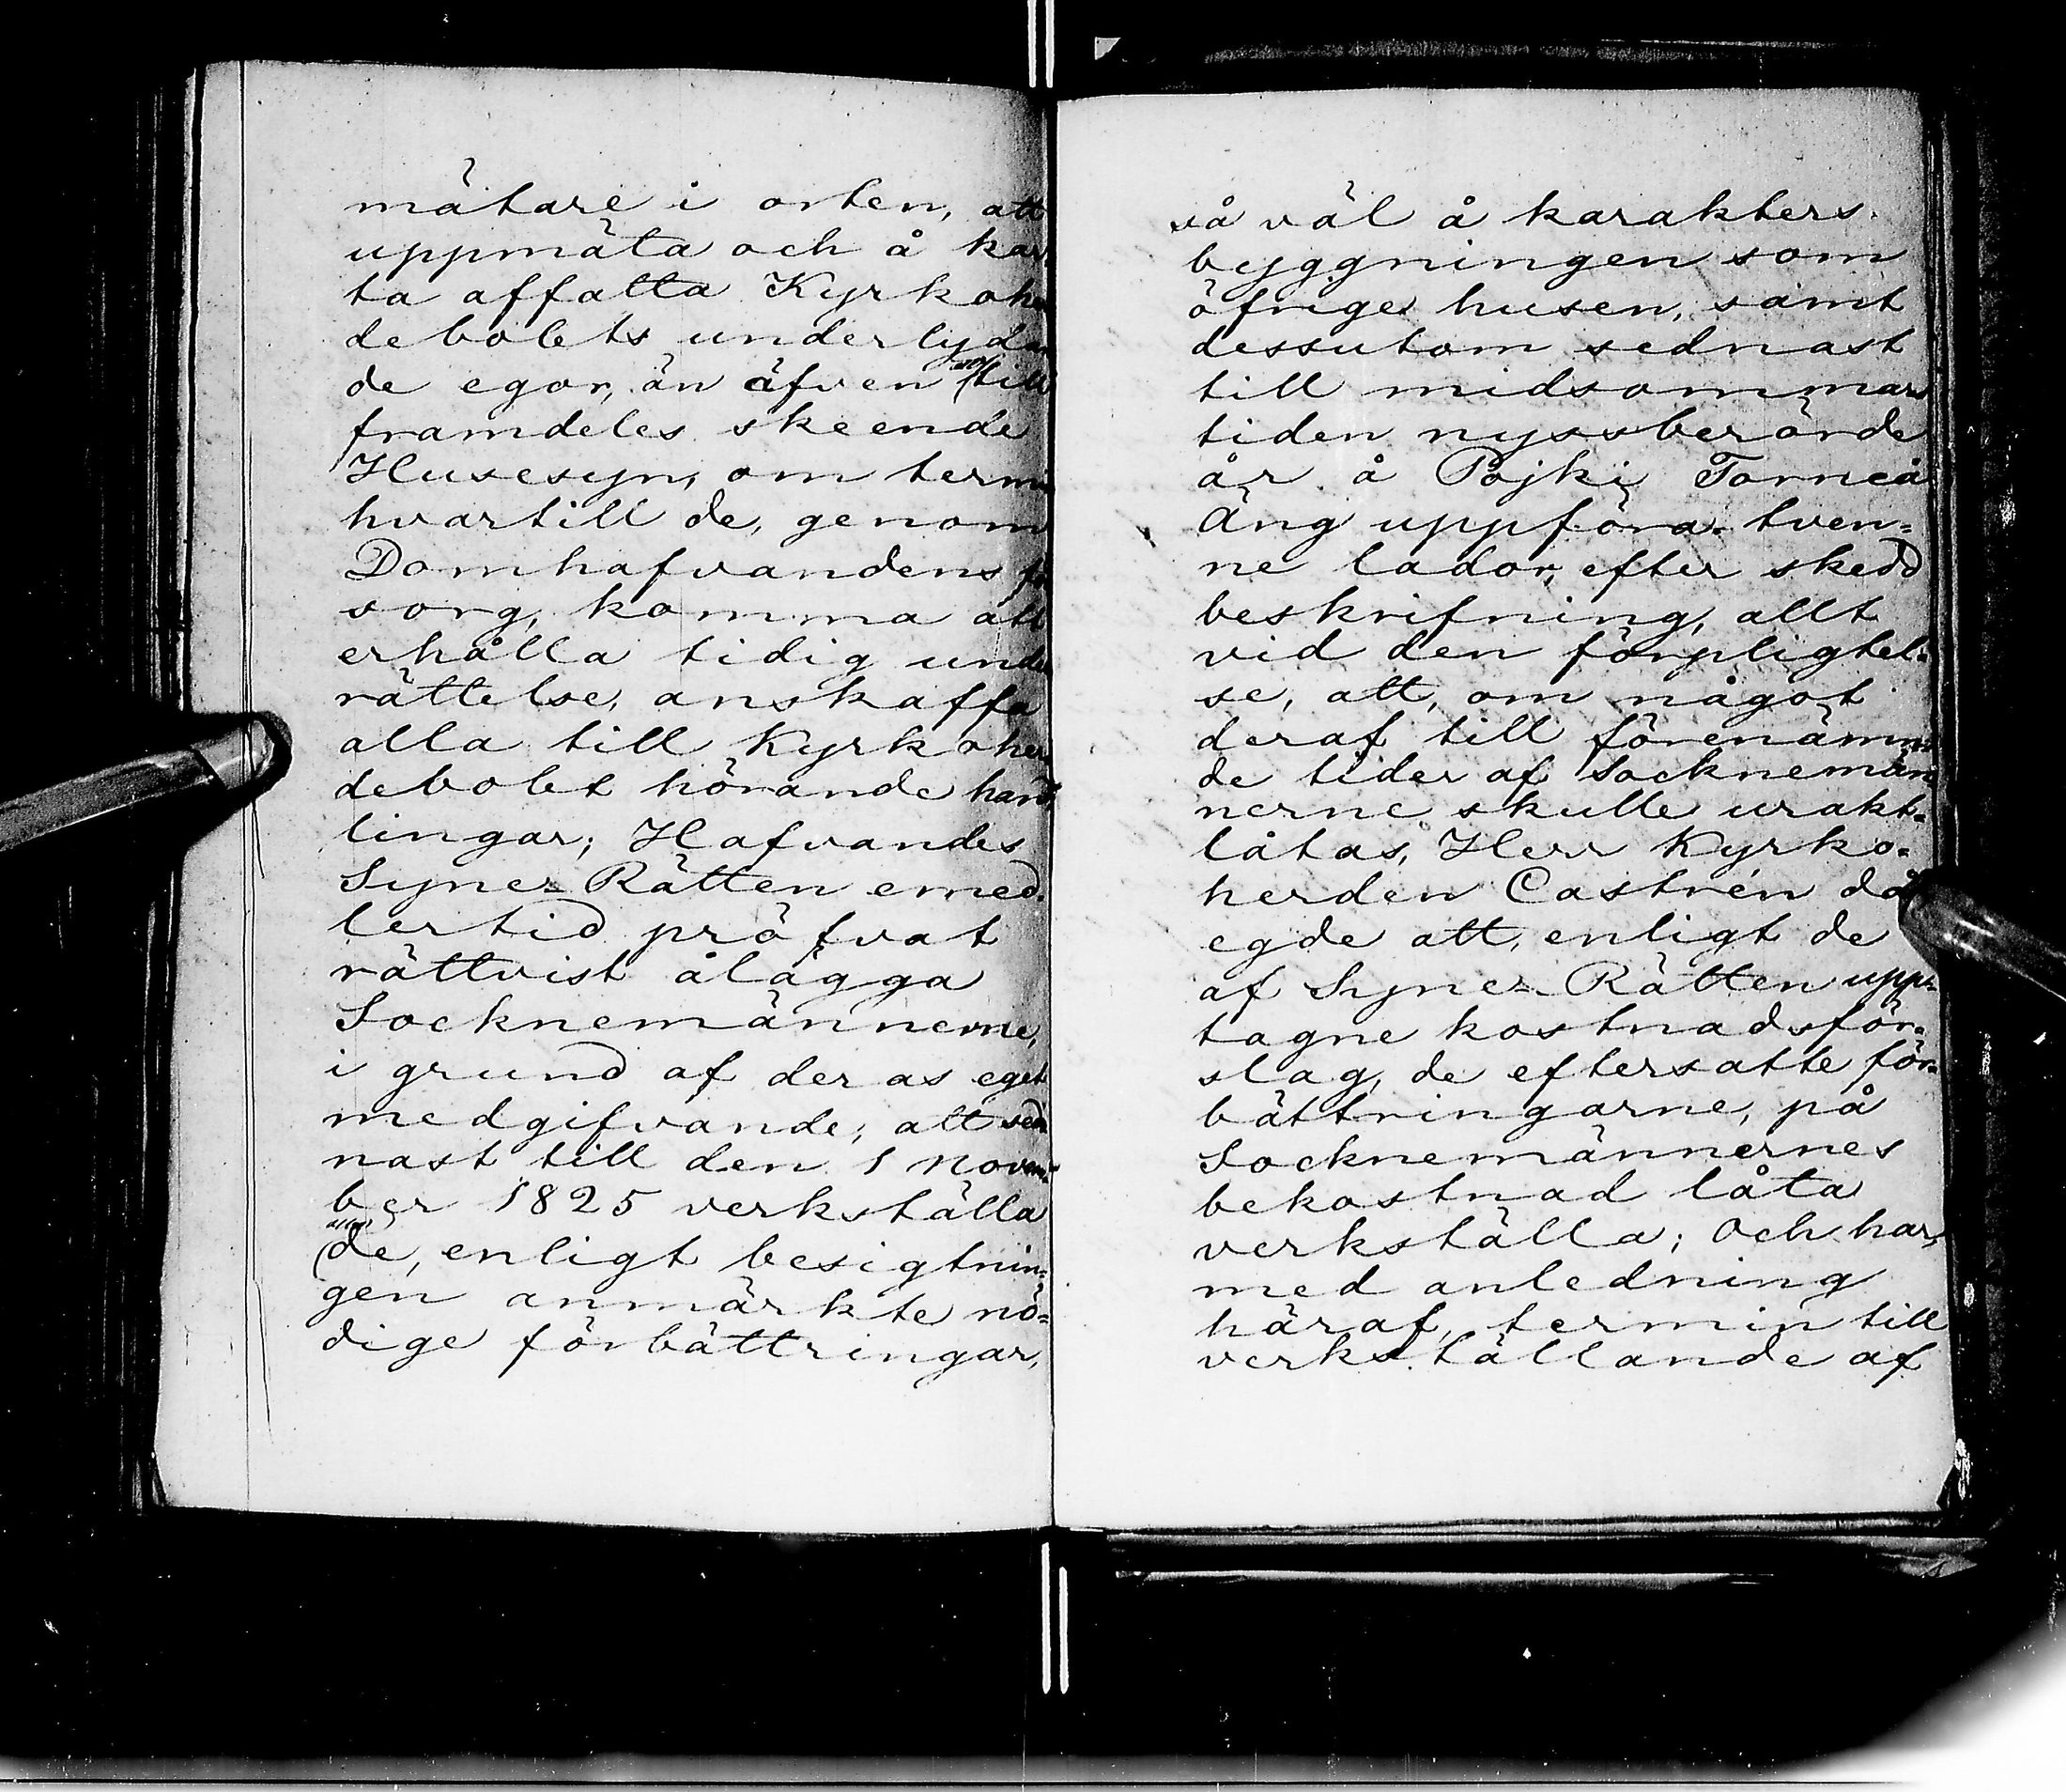 mätare i orten, att
uppmäta och å kar
ta affatta Kyrkohe
debolets underlydan
de egor, än äfven till
framdeles skeende
Husesyn, om termin
hvartill de, genom
Domhafvandens för
sorg, komma att
erhålla tidig under
rättelse, anskaffa
alla till Kyrkoher
debolet hörande hand
lingar; Hafvandes
Syne-Rätten emed.
lertid pröfvat
rättvist ålägga
Socknemännerne,
i grund af deras eget
medgifvande, att sed
nast till den 1 Novem
ber 1825 verkställa
alla
de, enligt besigtnin=
gen anmärkte nö=
dige förbättringar,
så väl å karakters.
byggningen som
öfrige husen, samt
dessutom sednast
till midsommars
tiden nyssberörde
år å Pojki Torneå
Äng uppföra tven=
ne lador, efter skedd
beskrifning, allt
vid den förpligtel=
se, att, om något
deraf till förenämn=
de tider af Socknemän
nerne skulle urakt=
låtas, Herr Kyrko=
herden Castrén då
egde att, enligt de
af Syne-Rätten upp=
tagne kostnadsför=
slag, de eftersatte för=
bättringarne, på
Socknemännernes
bekostnad låta
verkställa; Och har,
med anledning
häraf, termin till
verkställande af